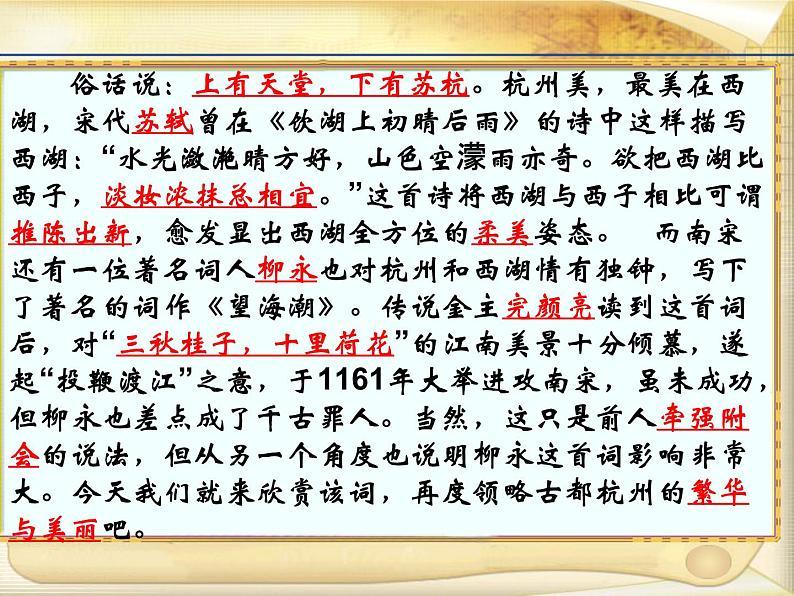 俗话说：上有天堂，下有苏杭。杭州美，最美在西
湖，宋代苏轼曾在《饮湖上初晴后雨》的诗中这样描写
西湖：“水光潋滟晴方好，山色空濛雨亦奇。欲把西湖比
西子，淡妆浓抹总相宜。”这首诗将西湖与西子相比可谓
推陈出新，愈发显出西湖全方位的柔美姿态。 而南宋
还有一位著名词人柳永也对杭州和西湖情有独钟，写下
了著名的词作《望海潮》。传说金主完颜亮读到这首词
后，对“三秋桂子，十里荷花”的江南美景十分倾慕，遂
起“投鞭渡江”之意，于1161年大举进攻南宋，虽未成功，
但柳永也差点成了千古罪人。当然，这只是前人牵强附
会的说法，但从另一个角度也说明柳永这首词影响非常
大。今天我们就来欣赏该词，再度领略古都杭州的繁华
与美丽吧。